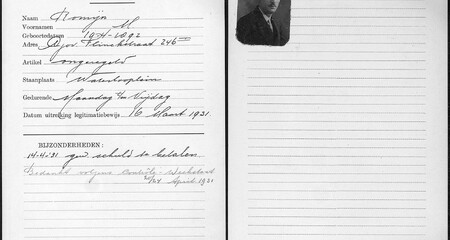 Naam Romijn
Voornamen M
Geboortedatum 19-4-1892
Adres Gov. Flinckstraat 246
Artikel ongeregeld
Staanplaats Waterlooplein
Gedurende Maandag t/m Vrijdag
Datum uitreiking legitimatiebewijs 16 Maart 1931.
BIJZONDERHEDEN:
14-4-'31 gew. schuld te betalen
Bedankt volgens Controle-Weekstaat
20/24 April 1931